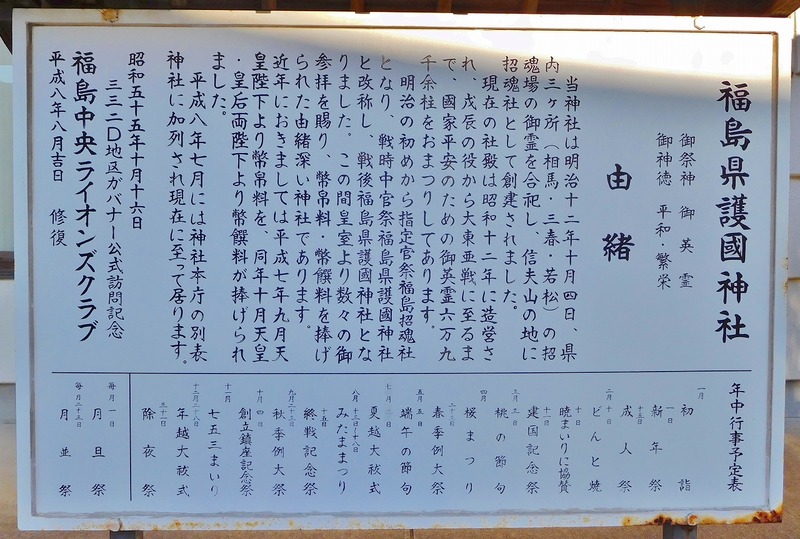 福島県護國神社
御祭神　御英霊
御神徳　平和・繁栄
由緒
当神社は明治十二年十月四日、県
内三ヶ所（相馬・三春・若松）の招
魂場の御霊を合祀し、信夫山の地に
招魂社として創建されました。
現在の社殿は昭和十二年に造営さ
れ、戊辰の役から大東亜戦に至るま
で、國家平安のための御英霊六万九
千余柱をおまつりしてあります。
明治の初めから指定官祭福島招魂社
となり、戦時中官祭福島県護國神社
と改称し、戦後福島県護國神社とな
りました。この間皇室より数々の御
参拝を賜り、幣帛料・幣饌料を捧げ
られた由緒深い神社であります。
近年におきましては平成七年九月天
皇陛下より幣帛料を、同年十月天皇
・皇后両陛下より幣饌料が捧げられ
ました。
平成八年七月には神社本庁の別表
神社に加列され現在に至って居ります。
昭和五十五年十月十六日
三三二D地区ガバナー公式訪問記念
福島中央ライオンズクラブ
平成八年八月吉日　修復
年中行事予定表
一月
一日　初詣
新年祭
十五日　成人祭
二月十日　どんと焼
十日　暁まいりに協賛
十一日　建国記念祭
三月三日　桃の節句
四月　桜まつり
二十三日　春季例大祭
五月五日　端午の節句
七月二日　夏越大祓式
八月十三日〜十八日　みたままつり
十五日　終戦記念祭
九月二十三日　秋季例大祭
十月四日　創立鎮座記念祭
十一月　七五三まいり
十二月二十八日　年越大祓式
三十一日　除夜祭
毎月一日　月旦祭
毎月二十三日　月並祭